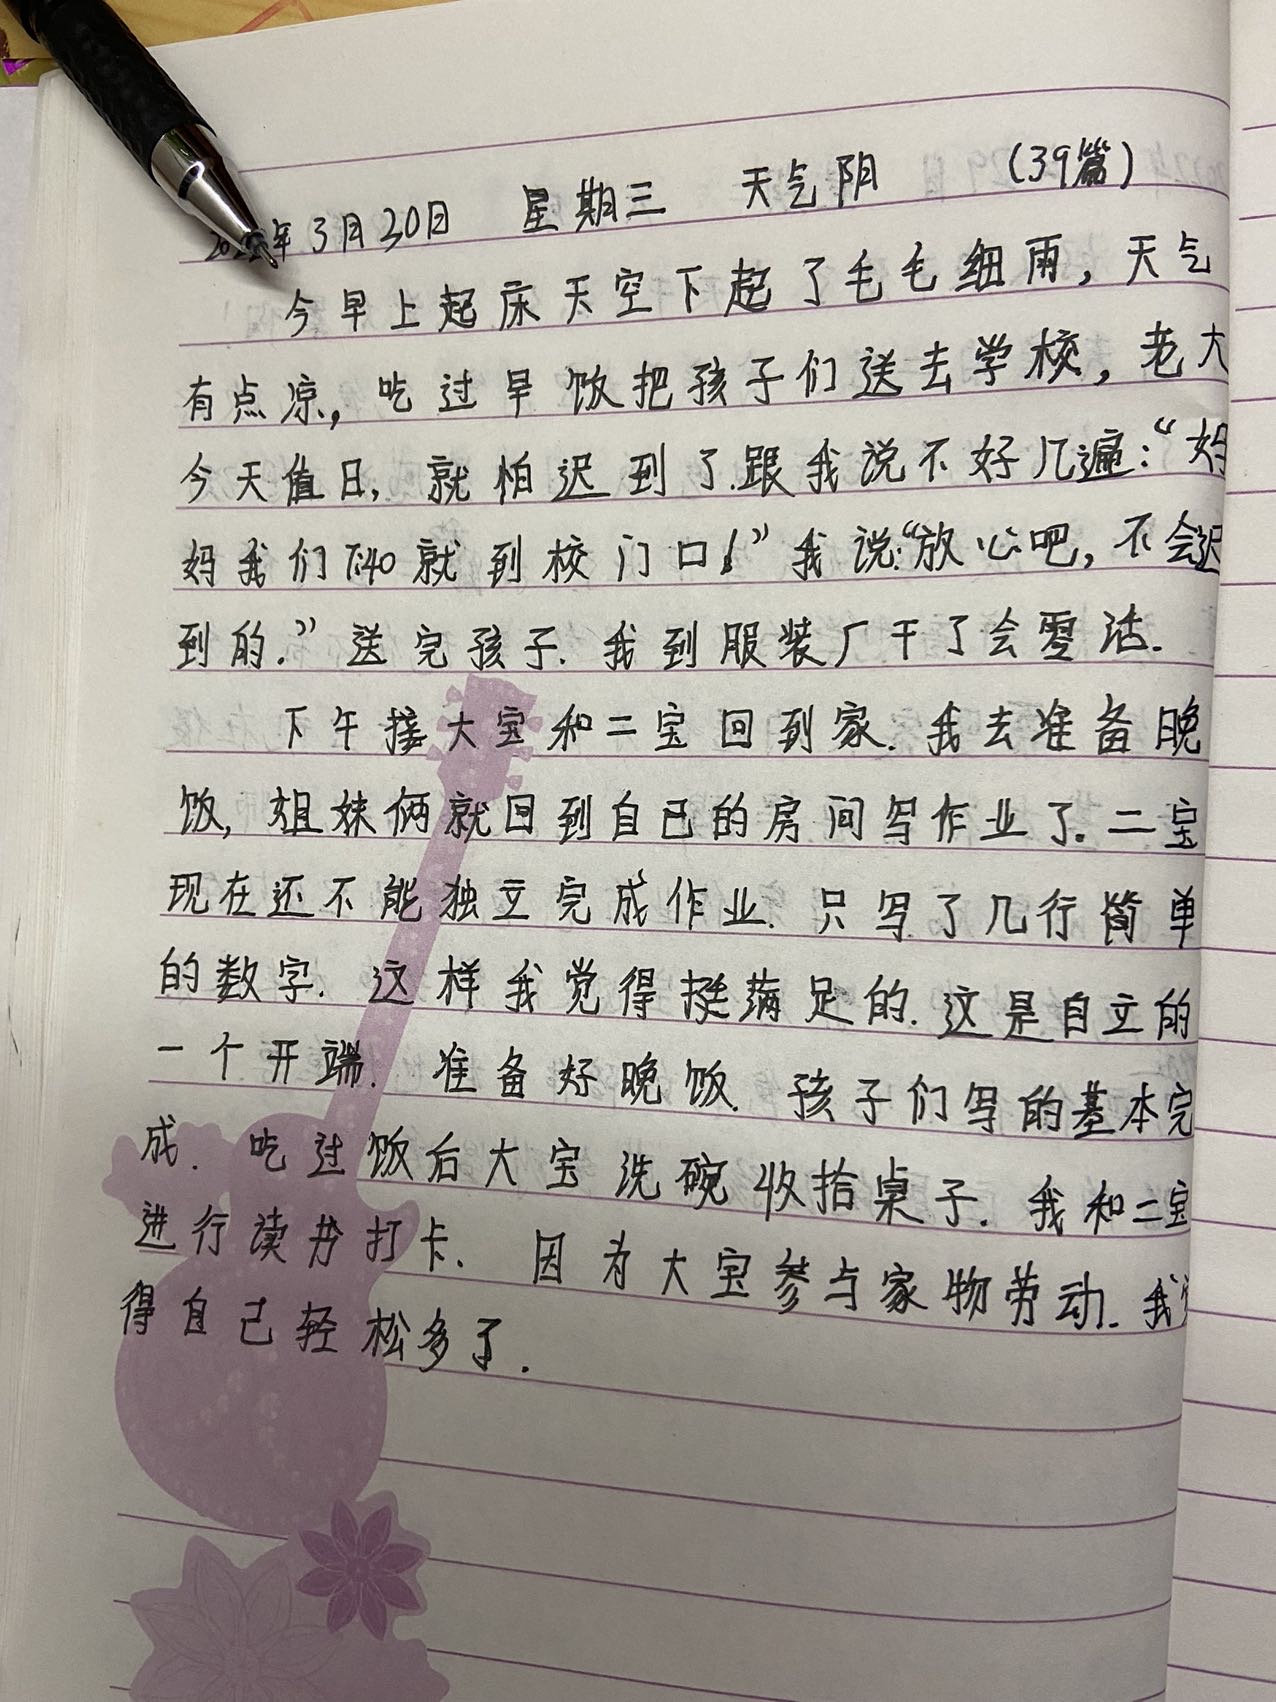 2022年3月30日 星期三 天气阴 (39篇)
今早上起床天空下起了毛毛细雨，天气
有点凉，吃过早饭把孩子们送去学校，老大
今天值日，就怕迟到了.跟我说不好几遍：“妈
妈我们7:40就到校门口！”我说：“放心吧，不会迟
到的.”送完孩子.我到服装厂干了会零活.
下午接大宝和二宝回到家.我去准备晚
饭，姐妹俩就回到自己的房间写作业了.二宝
现在还不能独立完成作业.只写了几行简单
的数字.这样我觉得挺满足的.这是自立的
一个开端.准备好晚饭.孩子们写的基本完
成.吃过饭后大宝洗碗收拾桌子.我和二宝
进行读书打卡.因为大宝参与家物劳动.我觉
得自己轻松多了.